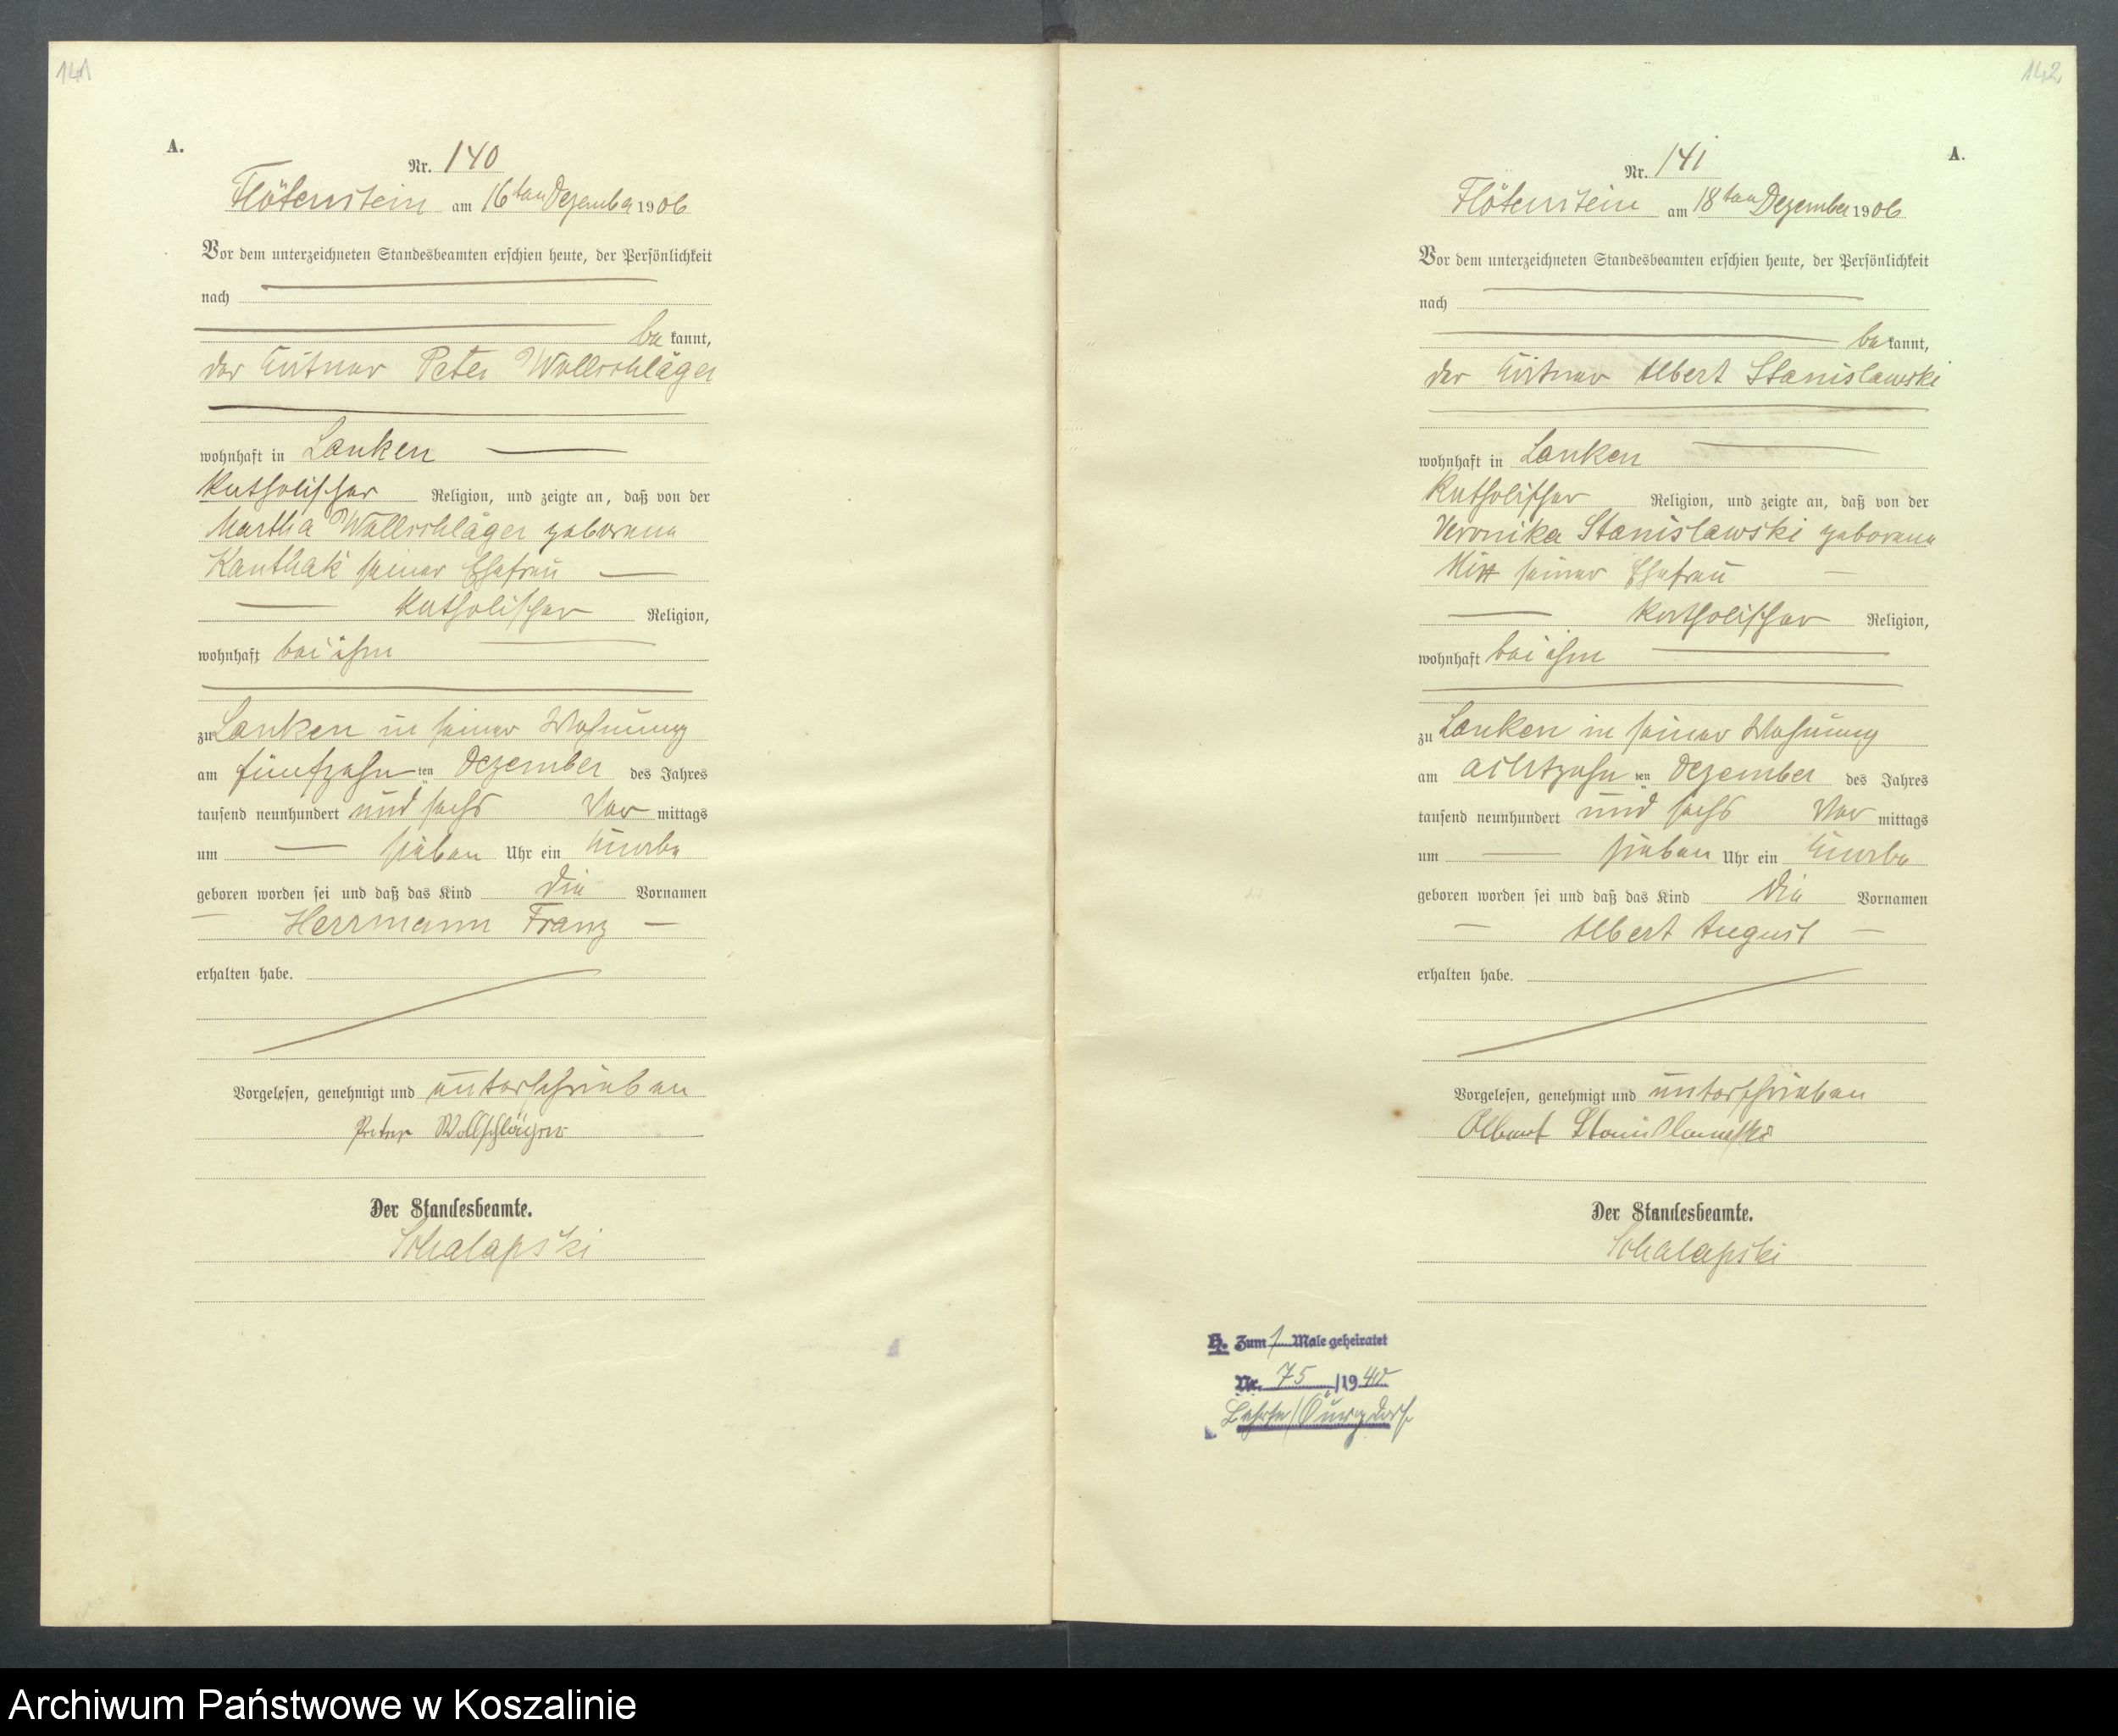 141
A.
Nr. 140
Flötenstein am 16ten Dezember 1906
Vor dem unterzeichneten Standesbeamten erschien heute, der Persönlichkeit
nach
be kannt,
der Peter Wollschläger
wohnhaft in Lanken
katholischer Religion, und zeigte an, daß von der
Martha Wollschläger geborene
Kanthak seiner Ehefrau
katholischer Religion,
wohnhaft bei ihm
zu Lanken in seiner Wohnung
am fünfzehn ten Dezember des Jahres
tausend neunhundert und sechs Vor mittags
um sieben Uhr ein Knabe
geboren worden sei und daß das Kind die Vornamen
Herrmann Franz
erhalten habe.
Vorgelesen, genehmigt und unterschrieben
Peter Wollschläger
Der Standesbeamte.
Schalapski
142
A.
Nr. 141
Flötenstein am 18ten Dezember 1906
Vor dem unterzeichneten Standesbeamten erschien heute, der Persönlichkeit
nach
be kannt,
der Albert Stanislawski
wohnhaft in Lanken
katholischer Religion, und zeigte an, daß von der
Veronika Stanislawski geborene
seiner Ehefrau
katholischer Religion,
wohnhaft bei ihm
zu Lanken in seiner Wohnung
am achtzehn ten Dezember des Jahres
tausend neunhundert und sechs Vor mittags
um sieben Uhr ein Knabe
geboren worden sei und daß das Kind die Vornamen
Albert August
erhalten habe.
Vorgelesen, genehmigt und unterschrieben
Albert Stanislawski
Der Standesbeamte.
Schalapski
H. Zum 1 Male geheiratet
Nr. 75 /1940
Archiwum Państwowe w Koszalinie